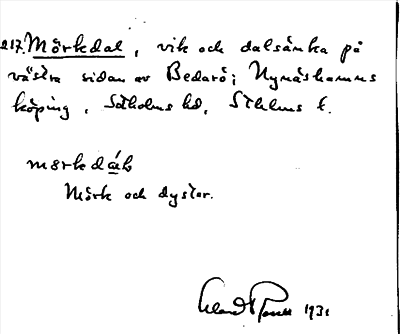 217. Mörkdal, vik och dalsänka på
västra sidan av Bedarö; Nynäshamns
köping, Sotholms hd, Sthlms l.
mörkdáɫ
Mörk och dyster.
1931